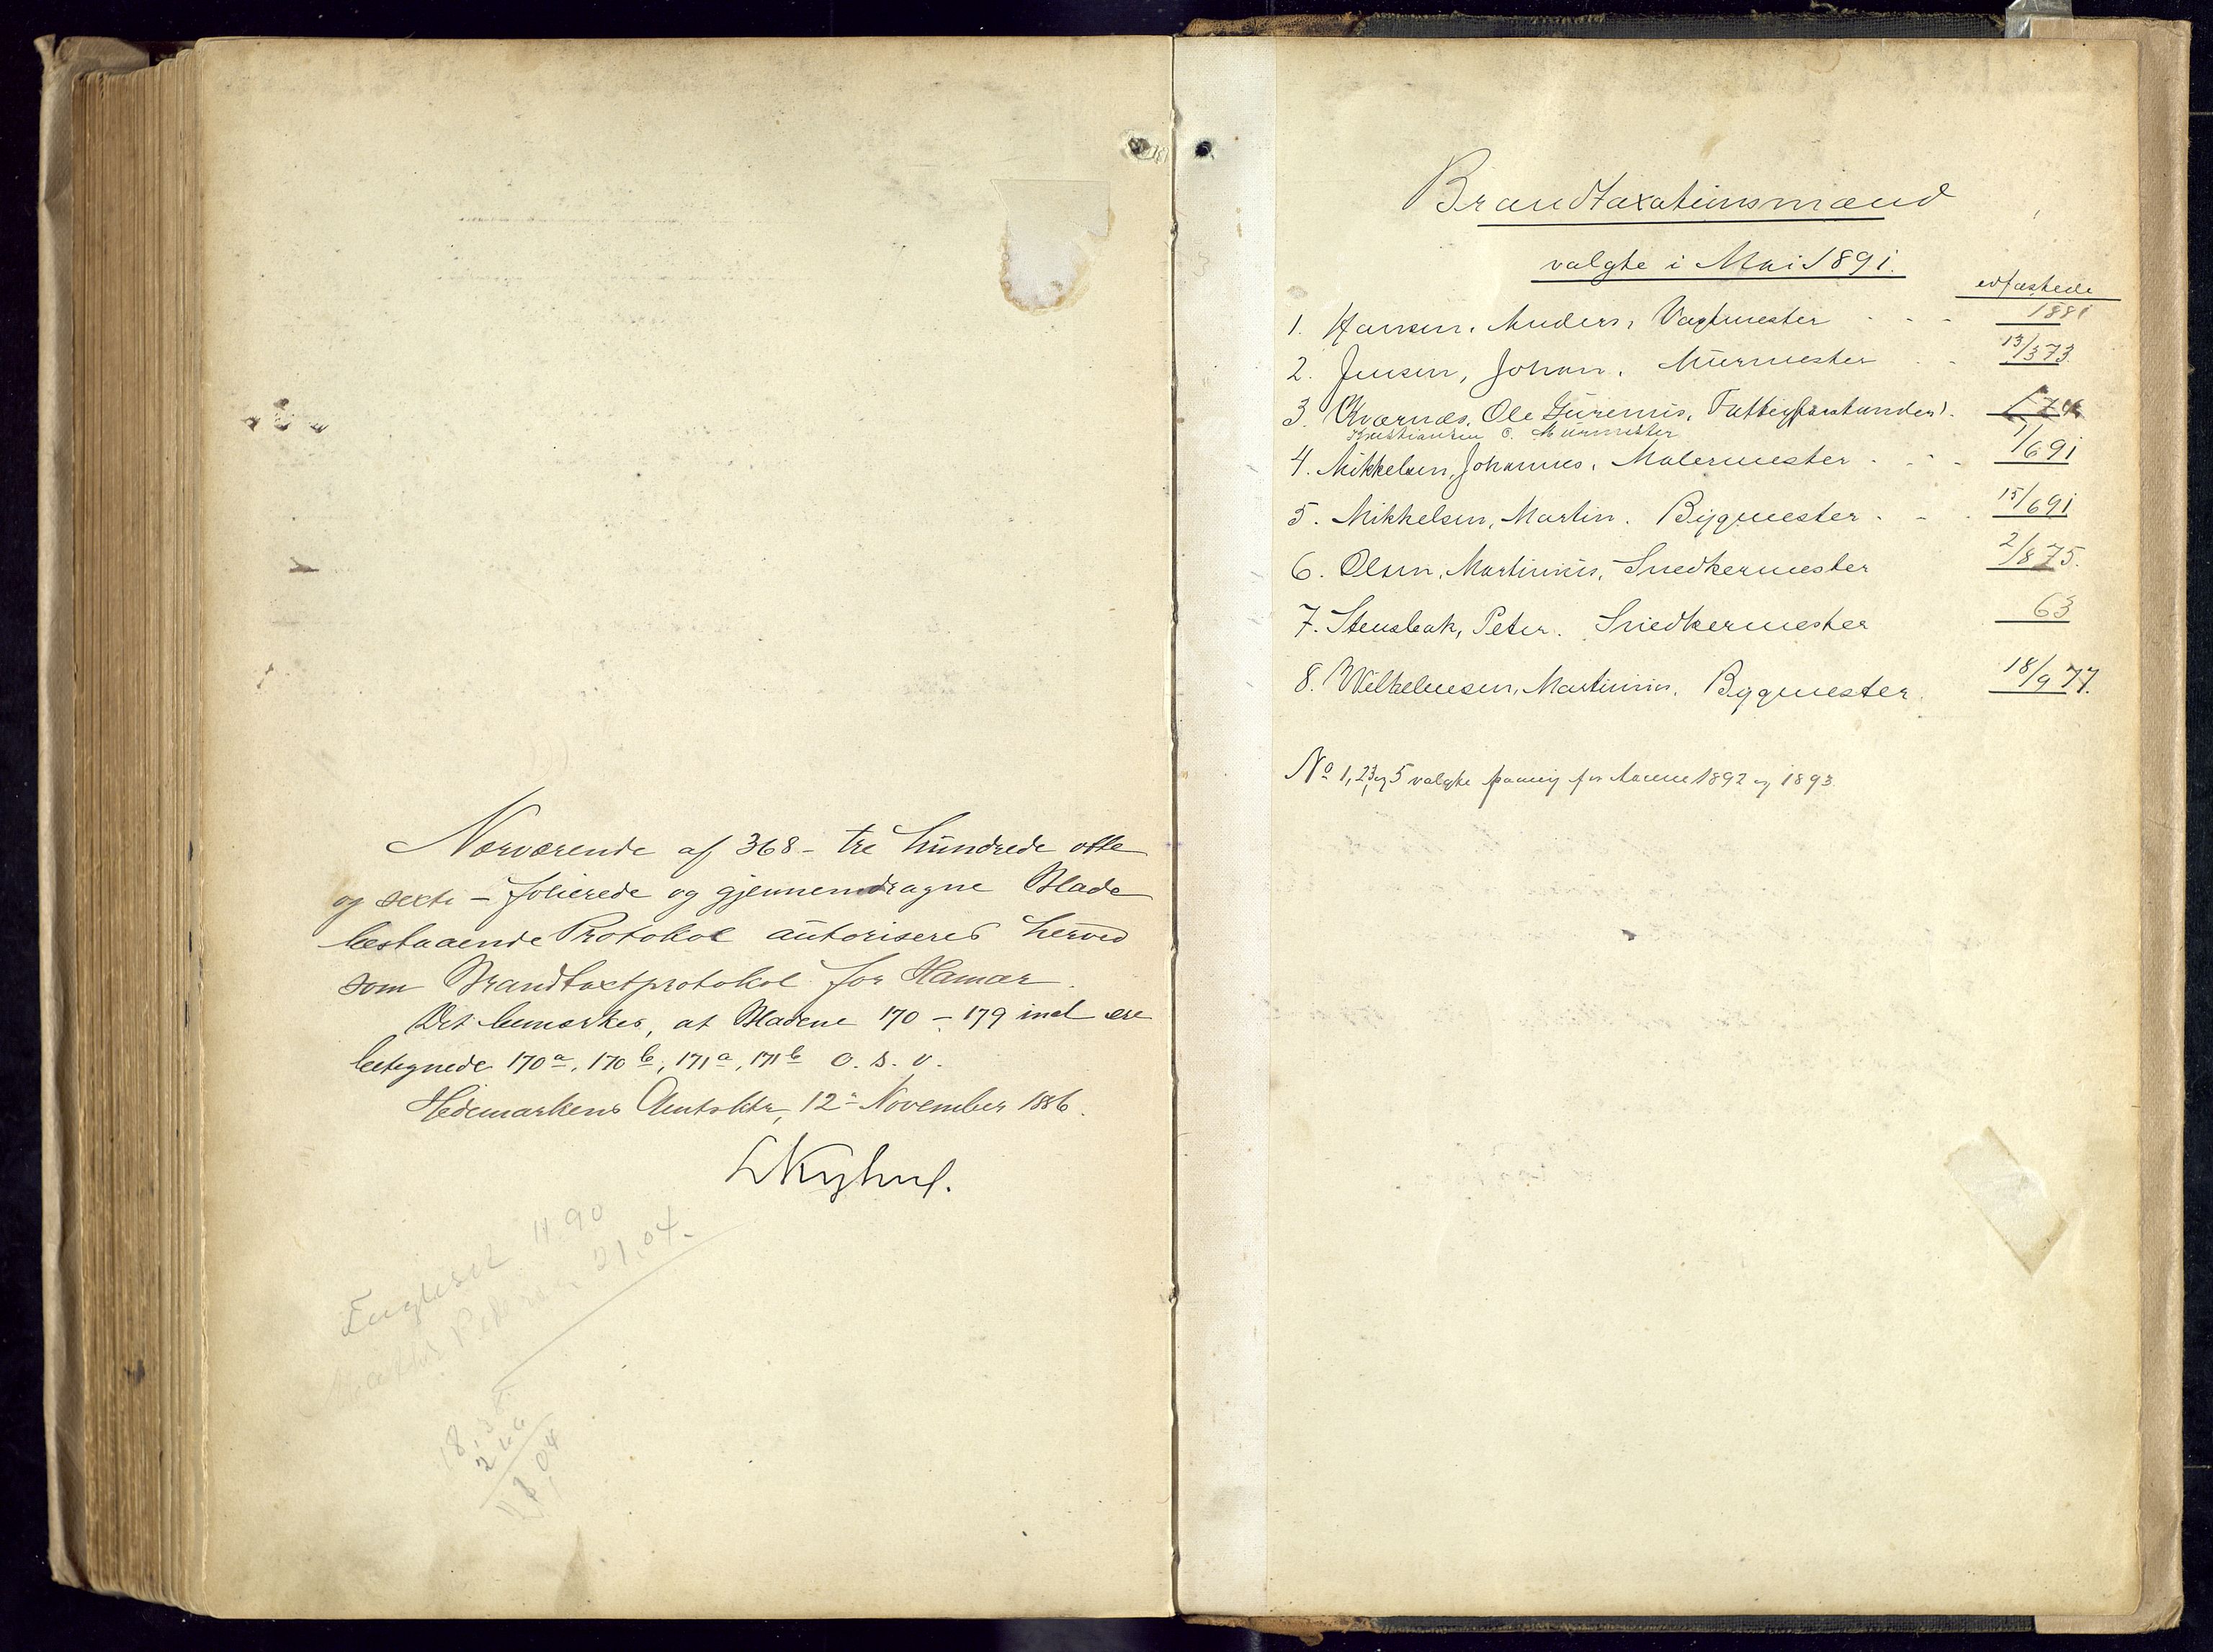 Nærværende af 368 - tre hundrede otte
og sexti - folierede og gjennemdragne Blade
bestaaende Protokol autoriseres herved
som Brandtaxtprotokol for Hamar.
Det bemærkes, at Bladene 170 - 179 incl ere
betegnede 170a, 170b, 171a, 171b o. s. v.
Hedemarkens Amtsktr, 12- November 1886.
Englesut 11.90
Pedersen 21.04.
18,
266
04
Brandtaxationsmænd
valgte i Mai 1891.
edfæstede
1. Hansen, Anders, Vagtmester - - - 1881
2. Jensen, Johan. Murmester - - 13/3 73.
3. Kværnæs, Ole Gurenius, Fattigforstander).
Kristiansen O. Murmester
4. Mikkelsen, Johannes, Malermester - - - 1/6 91
5. Mikkelsen, Martin. Bygmester - - - 15/6 91
6. Olsen, Martinius, Snedkermester 2/8 75.
7. Stensbak, Peter. Snedkermester 63
8. Wilhelmsen, Martinius. Bygmester. 18/9 77.
No 1, 2, 3 og 5 valgte paany for Aarene 1892 og 1893